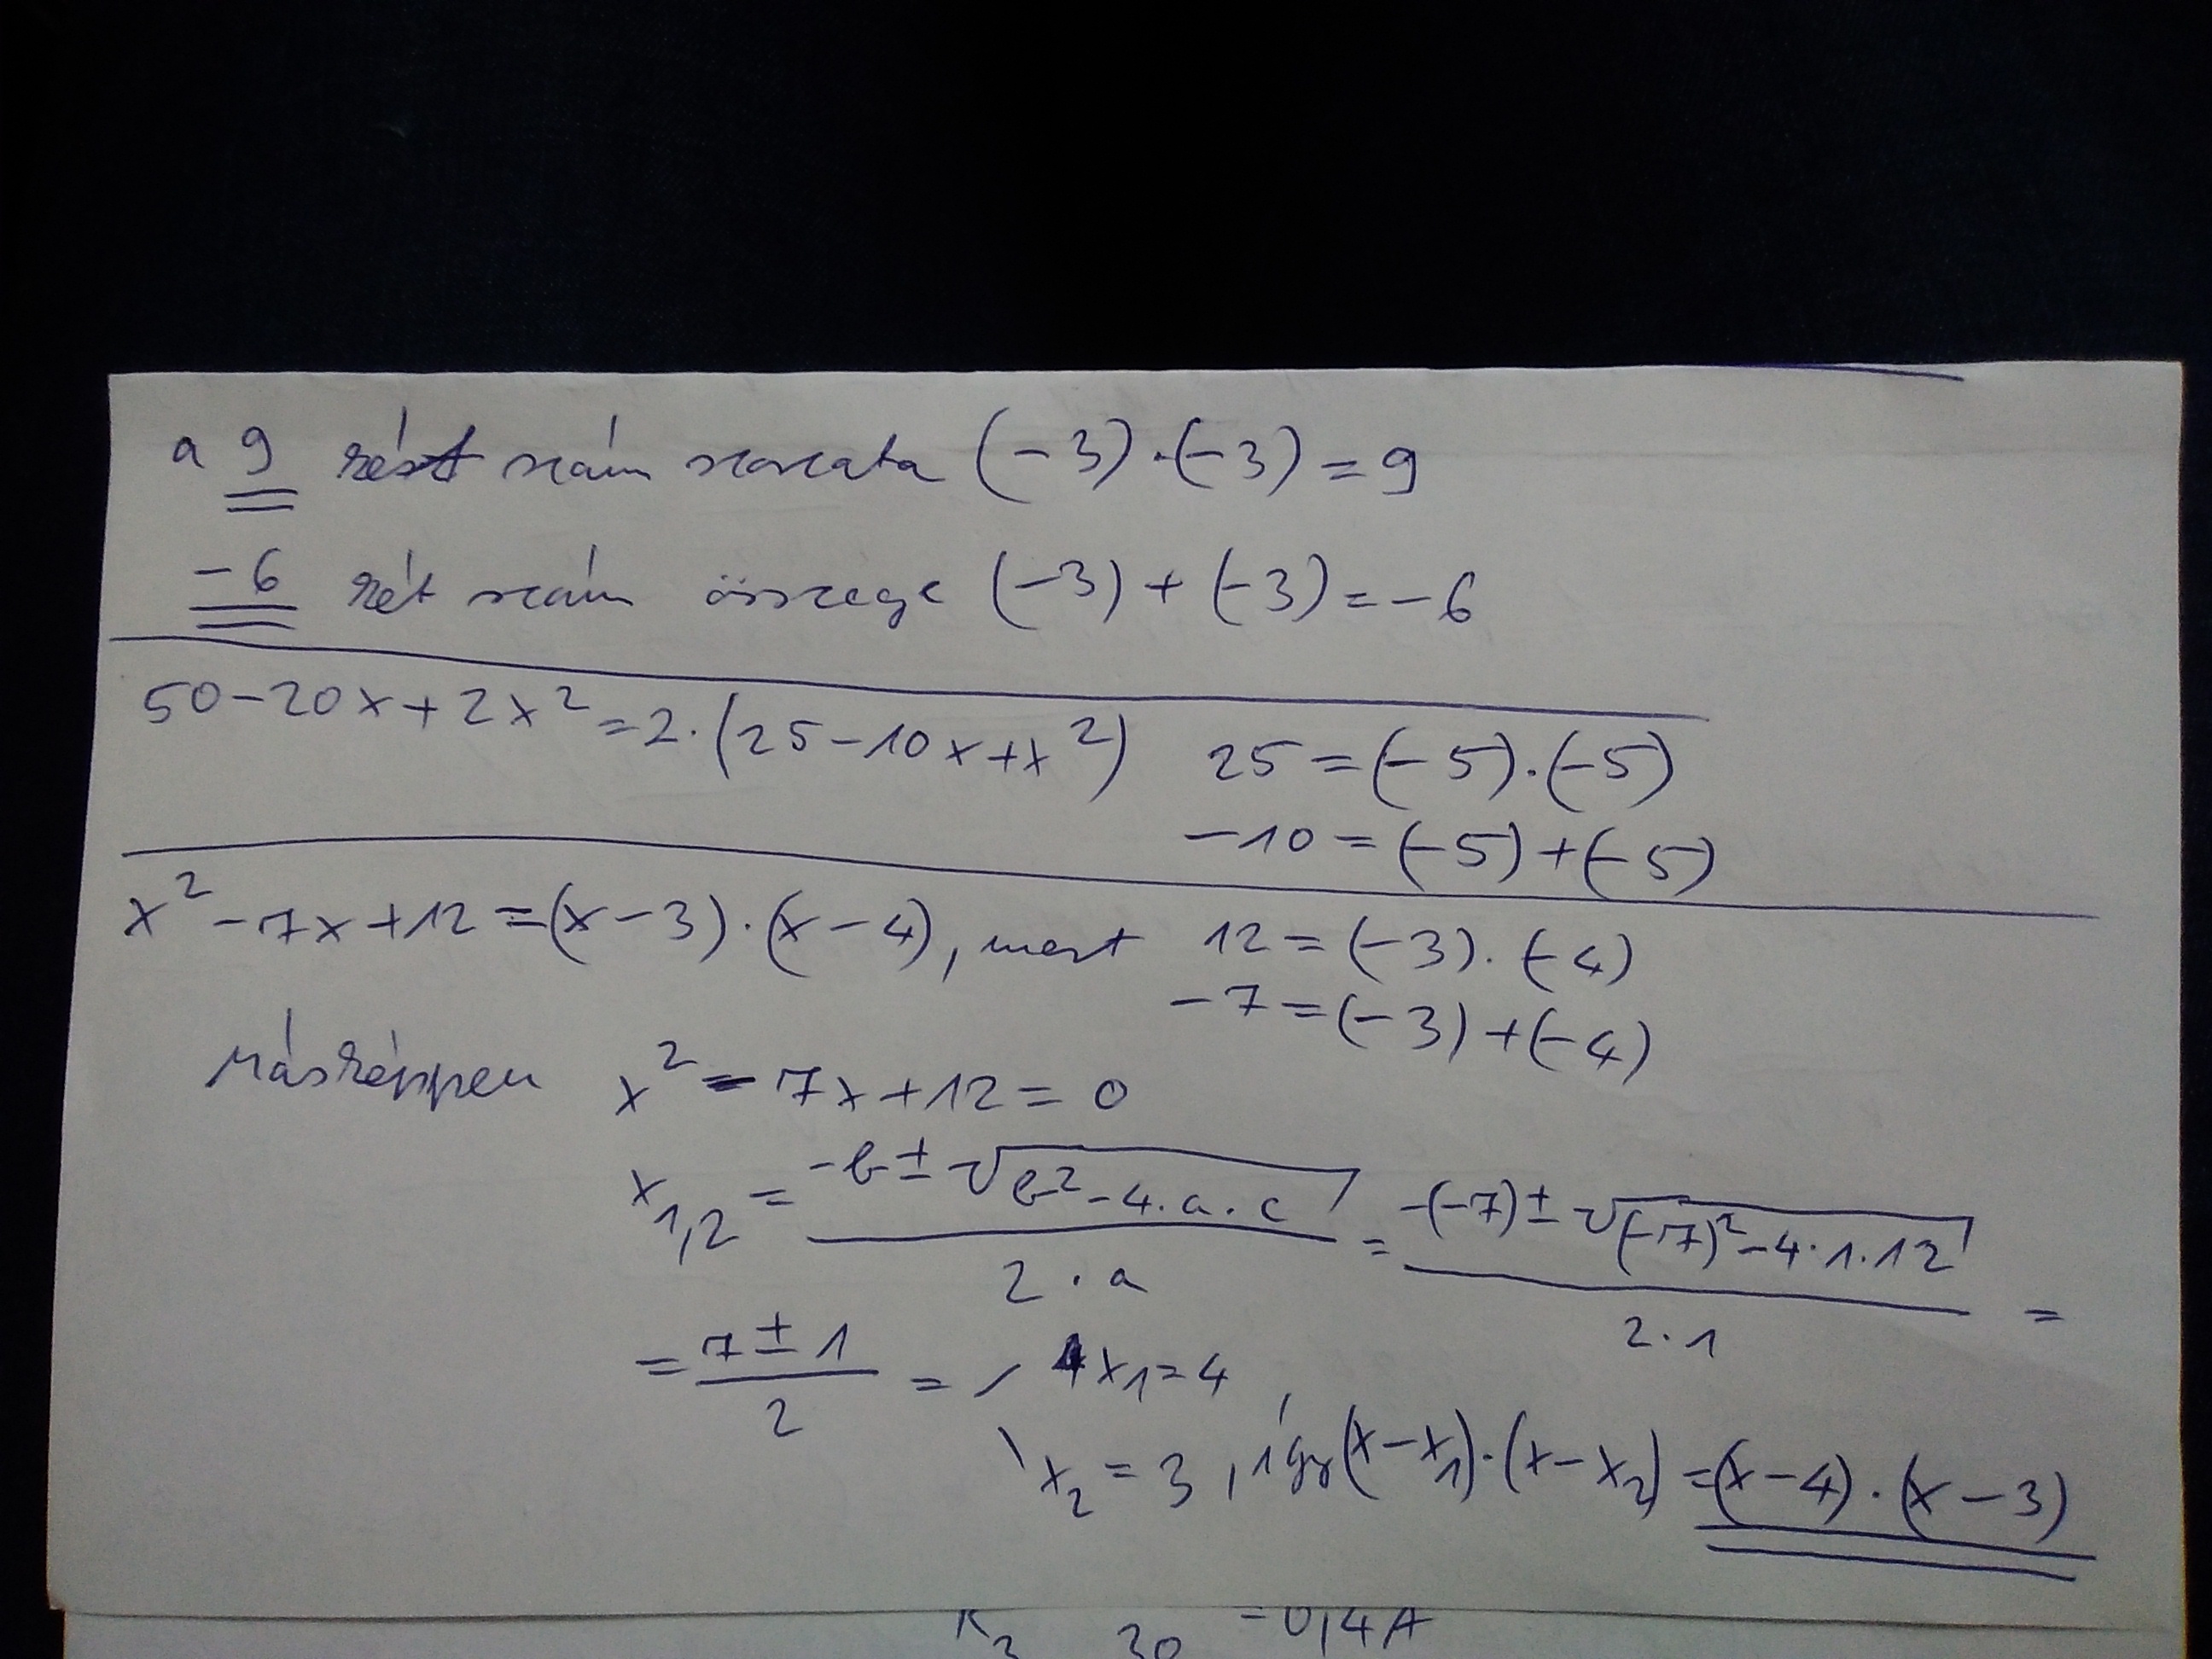 a 9 két szám szorzata (-3)·(-3) = 9
-6 két szám összege (-3) + (-3) = -6
50-20x+2x² = 2·(25-10x+x²) 25 = (-5)·(-5)
-10 = (-5)+(-5)
x²-7x+12 = (x-3)·(x-4), mert 12 = (-3)·(-4)
-7 = (-3)+(-4)
Másképpen x²-7x+12 = 0
x₁,₂ = (-b ± √(b²-4·a·c)) / (2·a) = (-(-7) ± √((-7)²-4·1·12)) / (2·1) =
= (7±1) / 2 = x₁=4
x₂ = 3, így (x-x₁)·(x-x₂) = (x-4)·(x-3)
30 = 0,4A